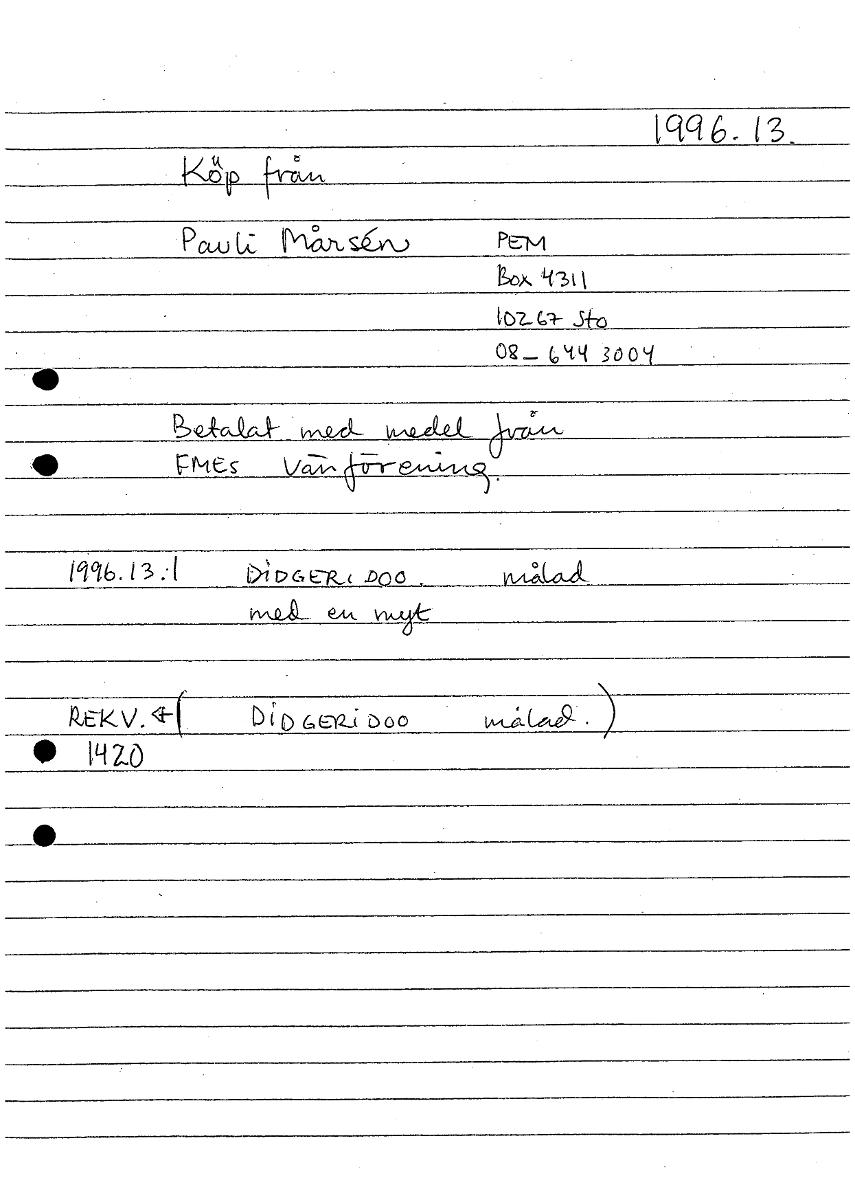 1996.13.
Köp från
Pauli Mårsén PEM
Box 4311
10267 Sto
08-644 3004
Betalat med medel från
FMEs Vänförening.
1996.13:1 DIDGERIDOO. målad
med en myt
REKV. ( DIDGERIDOO målad. )
1420